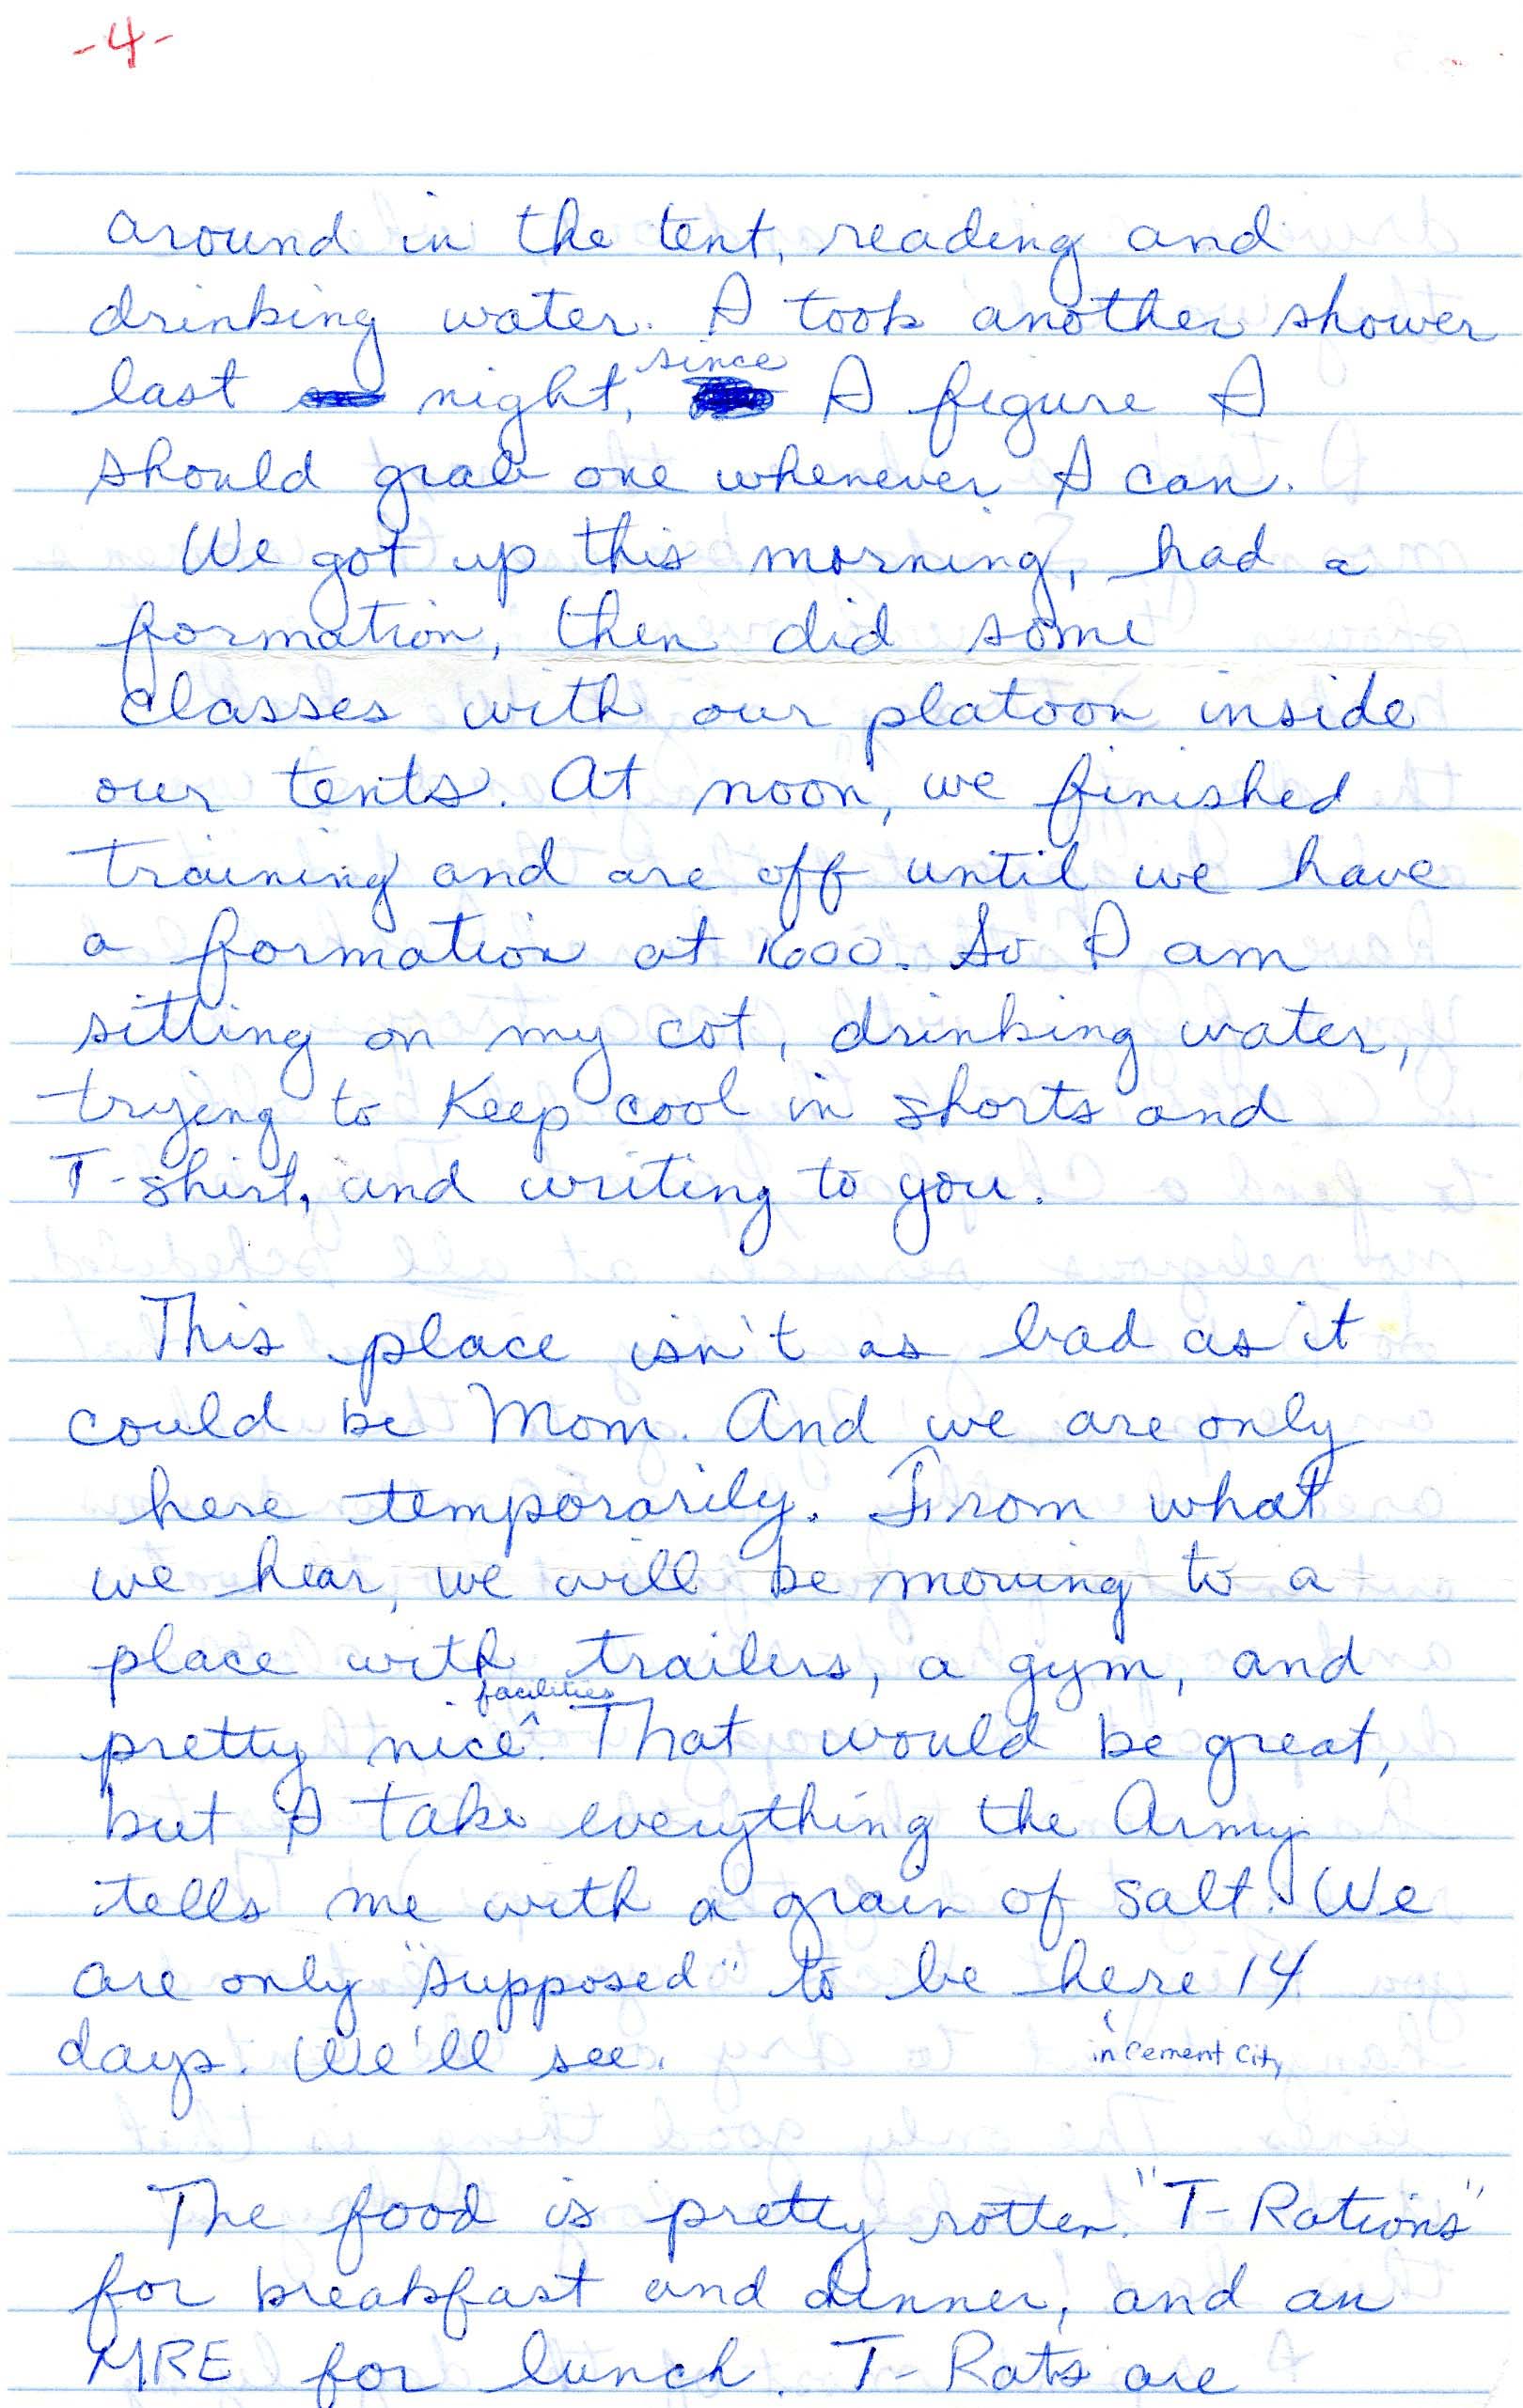 -4-
around in the tent, reading and
drinking water. I took another shower
last night, since I figure I
should grab one whenever I can.
We got up this morning, had a
formation, then did some
classes with our platoon inside
our tents. At noon, we finished
training and are off until we have
a formation at 1600. So I am
sitting on my cot, drinking water,
trying to keep cool in shorts and
T-shirt, and writing to you.
This place isn't as bad as it
could be Mom. And we are only
here temporarily. From what
we hear, we will be moving to a
place with trailers, a gym, and
facilities
pretty nice^. That would be great,
but I take everything the Army
tells me with a grain of salt. We
are only "supposed" to be here 14
days. We'll see. in Cement City
The food is pretty rotten. "T-Rations"
for breakfast and dinner, and an
MRE for lunch. T-Rats are